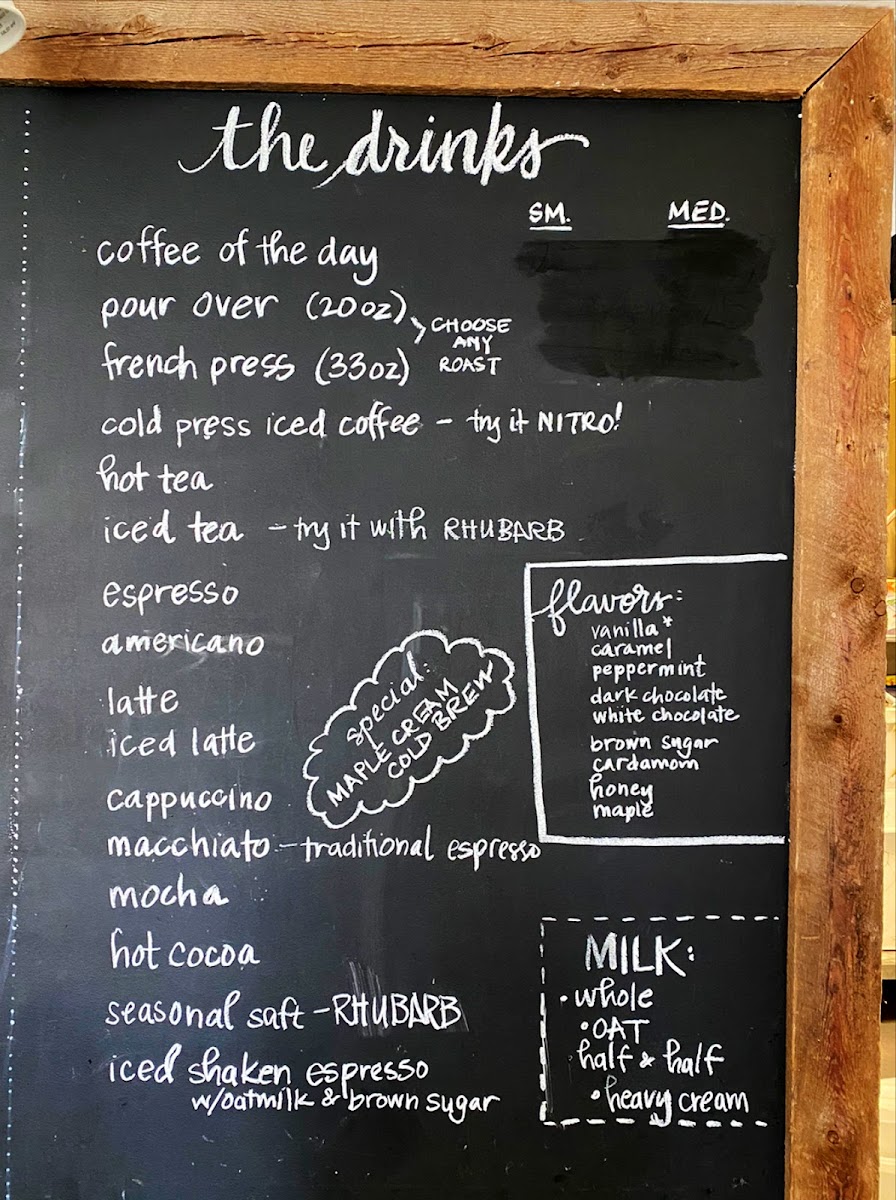 the drinks
SM. MED.
coffee of the day
pour over (20oz)
french press (33oz)
CHOOSE
ANY
ROAST
cold press iced coffee - try it NITRO!
hot tea
iced tea - try it with RHUBARB
espresso
americano
latte
iced latte
cappuccino
macchiato - traditional espresso
mocha
hot cocoa
seasonal saft - RHUBARB
iced shaken espresso
w/oatmilk & brown sugar
special:
MAPLE CREAM
COLD BREW
flavors:
vanilla*
caramel
peppermint
dark chocolate
white chocolate
brown sugar
cardamom
honey
maple
MILK:
• whole
• OAT
half & half
• heavy cream